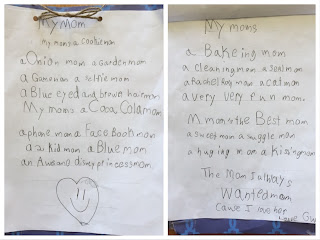 My Mom
my mom's a cookie mom
a Onion mom a garden mom
a Game mom a selfie mom
a Blue eyed and brown hair mom
My mom's a Coca Cola mom
a phone mom a Face Book mom
a kid mom a Blue mom
an Awsome disney princess mom
My moms
a Bakeing mom
a cleaning mom a
a cat mom
a very very fun mom.
M mom's the Best mom
a sweet mom a snuggle mom
a huging mom a Kissing mom
The Mom I always
Wanted mom
Cause I love her
Love